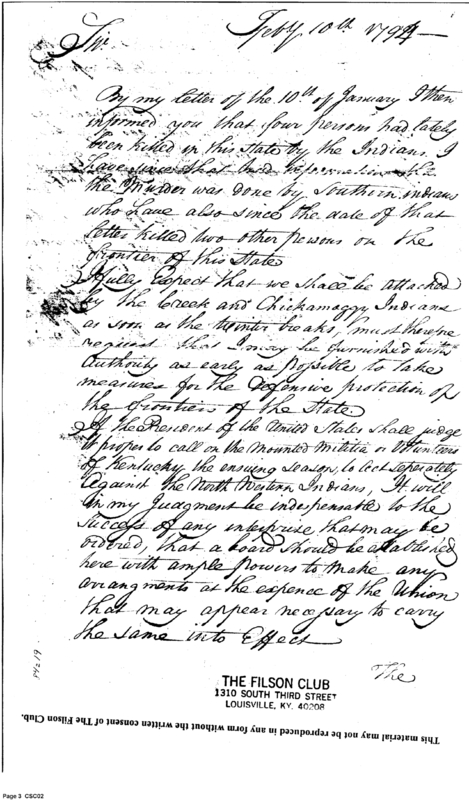 Sir Feby. 10th 1794—
By my letter of the 10th of January I then
informed you that four persons had lately
been killed in this state by the Indians. I
have since that had information that
the Murder was done by Southern indians
who have also since the date of that
letter killed two other persons on the
frontier of this State
I fully Expect that we shall be attacked
by the Creek and Chickamoggy Indians
as soon as the Winter breaks, must therefore
request that I may be furnished with
Authority as early as possible to take
measures for the Defensive protection of
the frontiers of the State.
If the President of the United States shall judge
it proper to call on the Mounted Militia or Volunteers
of Kentucky the ensuing season, to act seperately
against the North Western Indians, It will
in my Judgment be indespensable to the
Success of any interprise that may be
ordered, that a board should be established
here with ample powers to make any
arrangments at the expence of the Union
that may appear necessary to carry
the same into Effect
The
THE FILSON CLUB
1310 SOUTH THIRD STREET
LOUISVILLE, KY. 40208
This material may not be reproduced in any form without the written consent of The Filson Club.
Page 3 CSC02